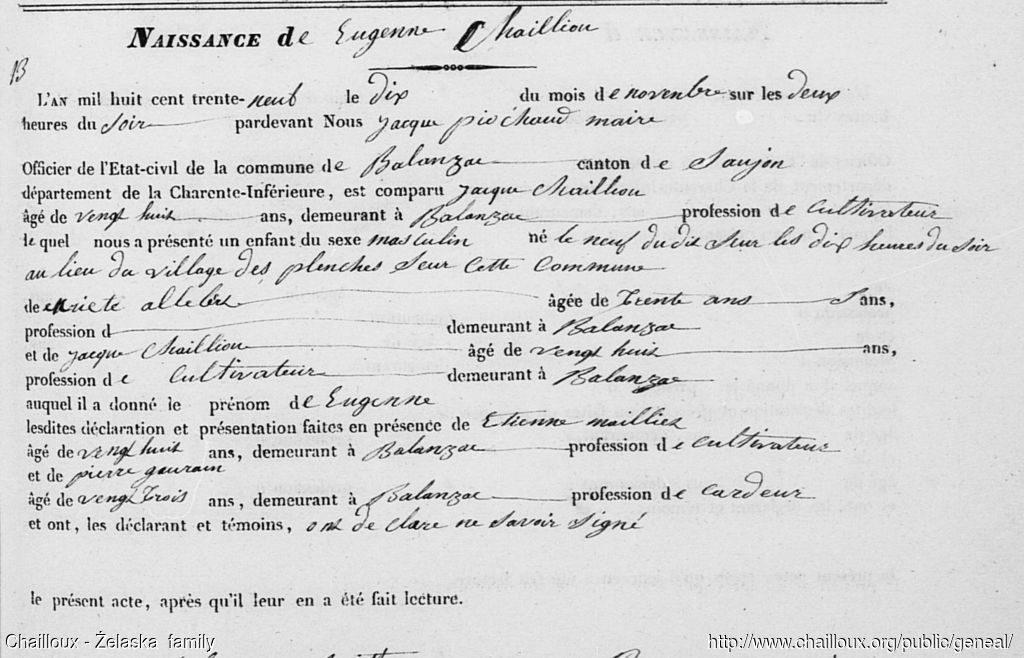 NAISSANCE de Eugenne Chailliou
13
L'AN mil huit cent trente-neuf le dix du mois de novenbre sur les deux
heures du soir pardevant Nous jacque piochaud maire
Officier de l'Etat-civil de la commune de Balanzac canton de Saujon
département de la Charente-Inférieure, est comparu jacque Chailliou
âgé de vengt huit ans, demeurant à Balanzac profession de Cultivateur
le quel nous a présenté un enfant du sexe masculin né le neuf du dit Seur les dix heures du Soir
au lieu du village des plenches Seur Cette Commune
de allebert âgée de trente ans ans,
profession d demeurant à Balanzac
et de jacque Chailliou âgé de vengt huit ans,
profession de Cultivateur demeurant à Balanzac
auquel il a donné le prénom de Eugenne
lesdites déclaration et présentation faites en présence de Etienne mailliez
âgé de vengt huit ans, demeurant à Balanzac profession de Cultivateur
et de pierre gourain
âgé de vengt trois ans, demeurant à Balanzac profession de Cardeur
et ont, les déclarant et témoins, ont de clare ne Savoir Signé
le présent acte, après qu'il leur en a été fait lecture.
Chailloux - Żelaska family http://www.chailloux.org/public/geneal/